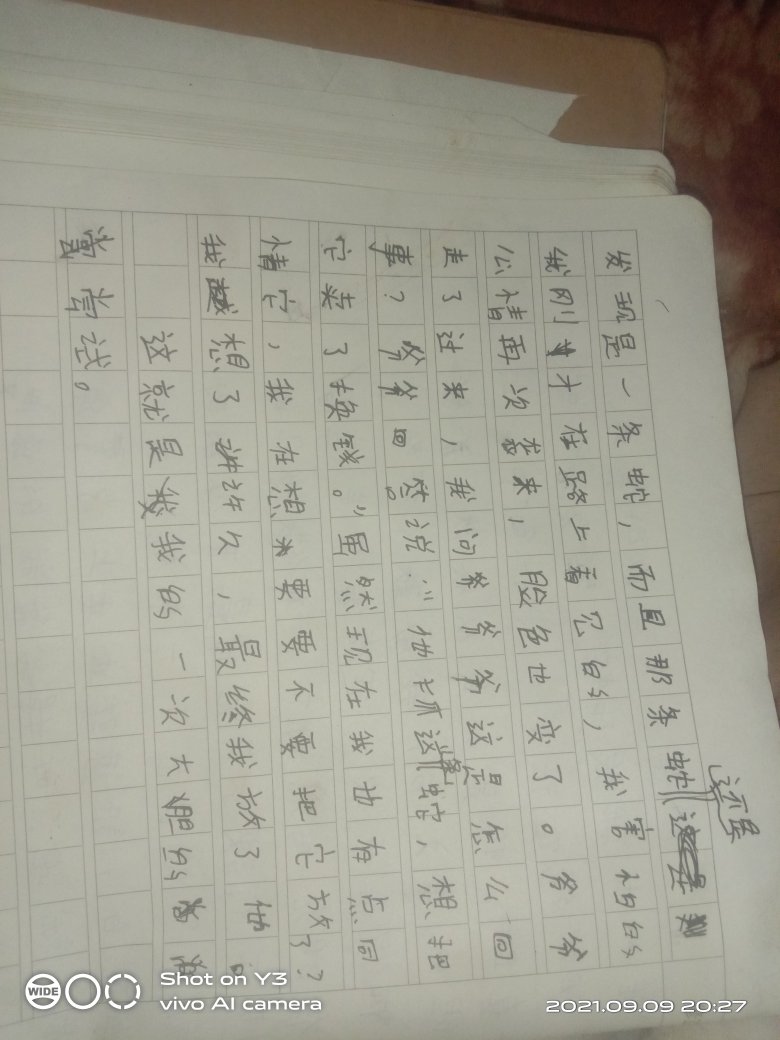 发现是一条蛇，而且那条蛇还是
我刚才在路上看见的，我害怕的
心情再次袭来，脸色也变了。爷爷
走了过来，我问爷爷这是怎么回
事？爷爷回答说：“他抓这条蛇，想把
它卖了换钱。”虽然现在我也有点同
情它，我在想要要不要把它放了？
我想了许久，最终我放了他。
这就是我的一次大胆的
尝试。
WIDE
Shot on Y3
vivo AI camera
2021.09.09 20:27